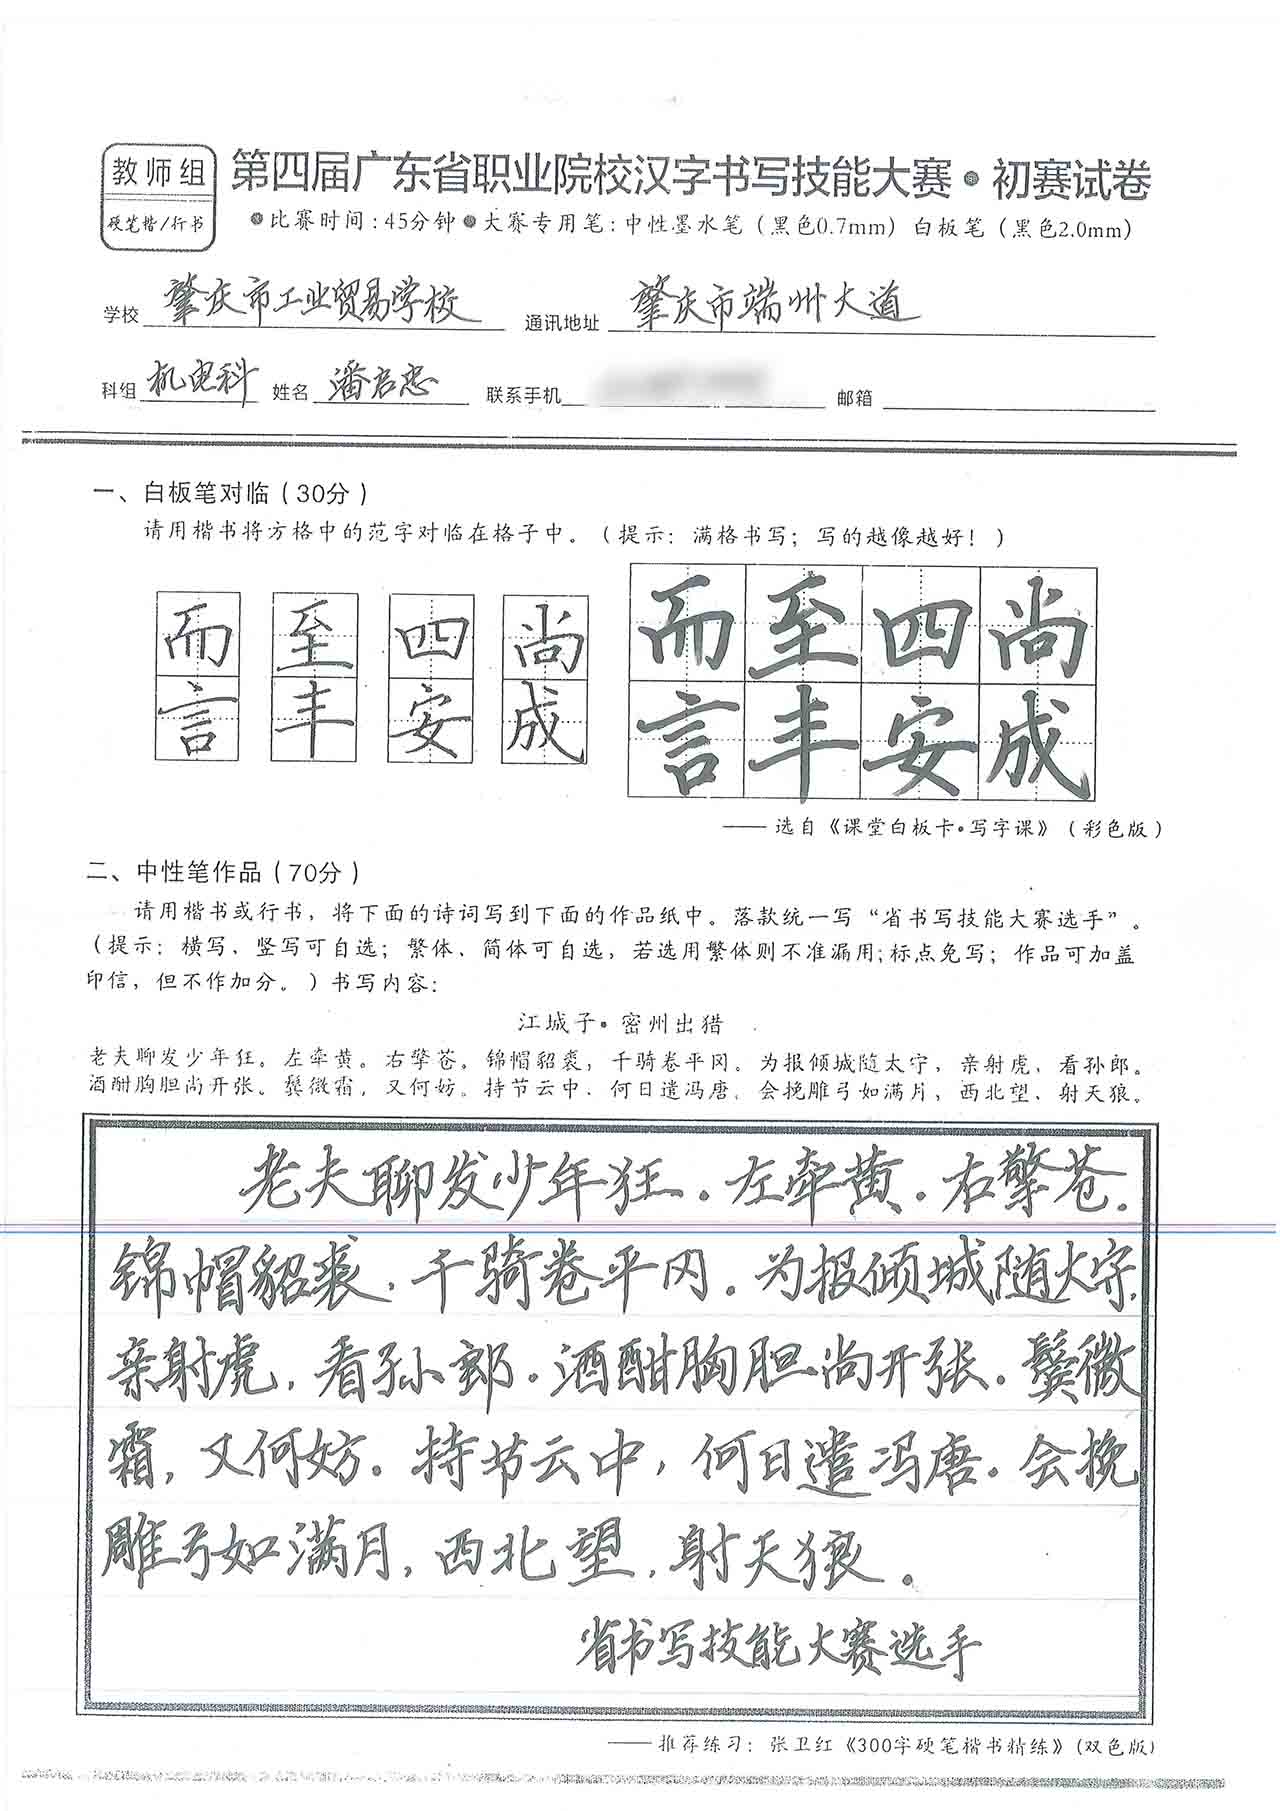 教师组
硬笔楷/行书
第四届广东省职业院校汉字书写技能大赛•初赛试卷
•比赛时间:45分钟•大赛专用笔:中性墨水笔(黑色0.7mm)白板笔(黑色2.0mm)
学校 肇庆市工业贸易学校 通讯地址 肇庆市端州大道
科组 机电科 姓名 潘启忠 联系手机 邮箱
一、白板笔对临(30分)
请用楷书将方格中的范字对临在格子中。(提示:满格书写;写的越像越好!)
而 至 四 尚 而 至 四 尚
言 丰 安 成 言 丰 安 成
——选自《课堂白板卡•写字课》(彩色版)
二、中性笔作品(70分)
请用楷书或行书,将下面的诗词写到下面的作品纸中。落款统一写“省书写技能大赛选手”。
(提示:横写、竖写可自选;繁体、简体可自选,若选用繁体则不准漏用;标点免写;作品可加盖
印信,但不作加分。)书写内容:
江城子•密州出猎
老夫聊发少年狂。左牵黄。右擎苍。锦帽貂裘,千骑卷平冈。为报倾城随太守,亲射虎,看孙郎。
酒酣胸胆尚开张。鬓微霜,又何妨。持节云中、何日遣冯唐。会挽雕弓如满月,西北望、射天狼。
老夫聊发少年狂。左牵黄。右擎苍。
锦帽貂裘,千骑卷平冈。为报倾城随太守,
亲射虎,看孙郎。酒酣胸胆尚开张。鬓微
霜,又何妨。持节云中,何日遣冯唐。会挽
雕弓如满月,西北望,射天狼。
省书写技能大赛选手
——推荐练习:张卫红《300字硬笔楷书精练》(双色版)